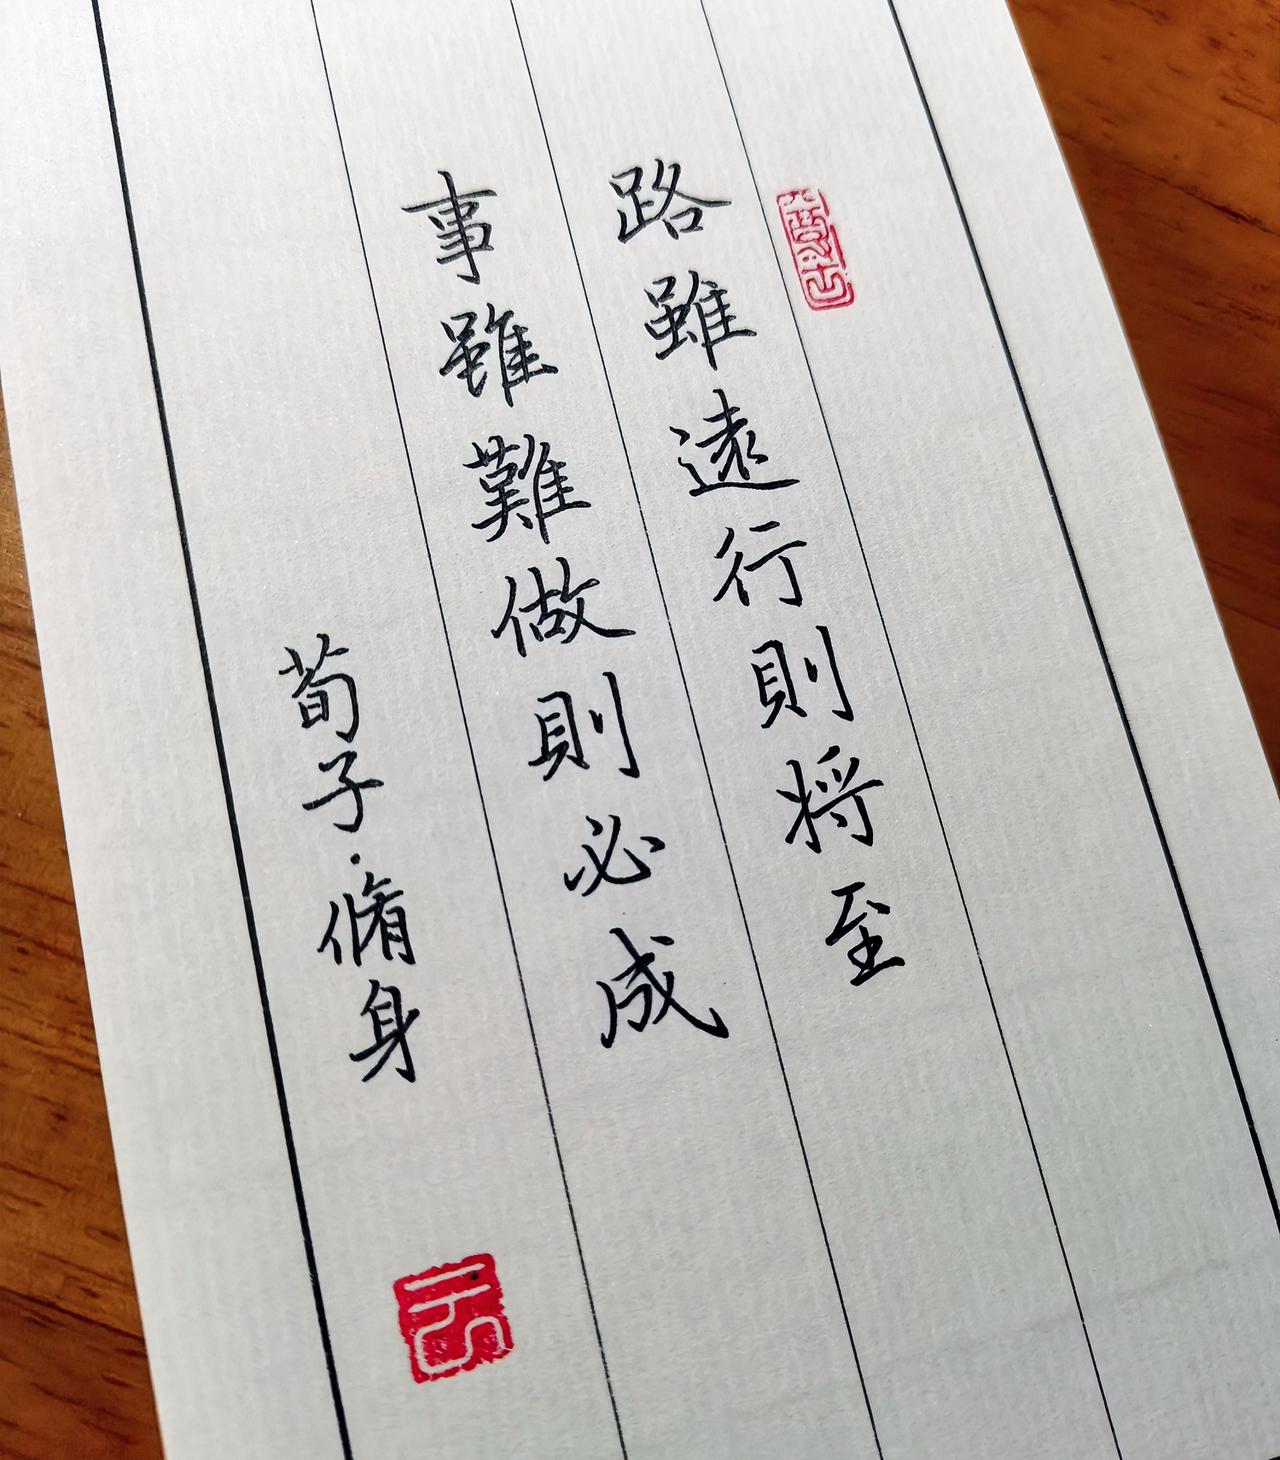 路雖遠行則将至
事雖難做則必成
荀子·脩身